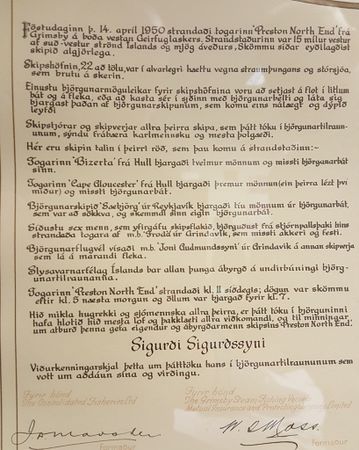 Föstudaginn þ. 14. apríl 1950 strandaði togarinn "Preston North End" frá
Grimsby á boða vestan Geirfuglaskers. Strandstaðurinn var 15 mílur vestur
af suð-vestur strönd Íslands og mjög áveðurs. Skömmu síðar eyðilagðist
skipið algjörlega.
Skipshöfnin, 22 að tölu, var í alvarlegri hættu vegna straumþungans og stórsjóa,
sem brutu á skerin.
Einustu björgunarmöguleikar fyrir skipshöfnina voru að setjast á flot í litlum
bát og á fleka, eða að kasta sér í sjóinn með björgunarbelti og láta sig
bjargast þaðan af björgunarskipunum, sem komu eins nálægt og dýpið
leyfði.
Skipstjórar og skipverjar allra þeirra skipa, sem þátt tóku í björgunartilraun-
unum, sýndu frábæra karlmennsku og mesta þolgæði.
Hér eru skipin talin í þeirri röð, sem þau komu á strandstaðinn:-
Togarinn "Bizerta" frá Hull bjargaði tveimur mönnum og missti björgunarbát
sinn.
Togarinn "Cape Gloucester" frá Hull bjargaði þremur mönnum (ein þeirra lézt því
miður) og missti björgunarbát.
Björgunarskipið "Sæbjörg" úr Reykjavík bjargaði tíu mönnum úr björgunarbát,
sem var að sökkva, og skemmdi sinn eigin björgunarbát.
Síðustu sex menn, sem voru yfirgáfu skipsflakið, björguðust frá stjórnpallsþaki hins
strandaða togara af m.b. "Fróða" úr Grindavík, sem missti akkeri og festi.
Björgunarflugvél vísaði m.b. "Joni Gudmundssyni" úr Grindavík á annan skipverja
sem lá á marandi fleka.
Slysavarnarfélag Íslands bar allan þunga ábyrgð á undirbúningi björg-
unartilraunanna.
Togarinn "Preston North End" strandaði kl. 11 síðdegis; dögun var skömmu
eftir kl. 5 næsta morgun og öllum var bjargað fyrir kl. 7.
Hið mikla hugrekki og sjómennska allra þeirra, er þátt tóku í björguninni
hafa hlotið hið mesta lof og þakklæti allra viðkomandi, og til minningar
um atburð þenna geta eigendur og ábyrgðarmenn skipsins "Preston North End",
Sigurði Sigurðssyni
Viðurkenningarskjal þetta um þátttöku hans í björgunartilraununum sem
vott um aðdáun sína og virðingu.
Fyrir hönd
The Consolidated Fisheries Ltd
Formaður
Fyrir hönd
The Grimsby Steam Fishing Vessels
Mutual Insurance and Protecting Company Limited
W. S. Moss
Formaður